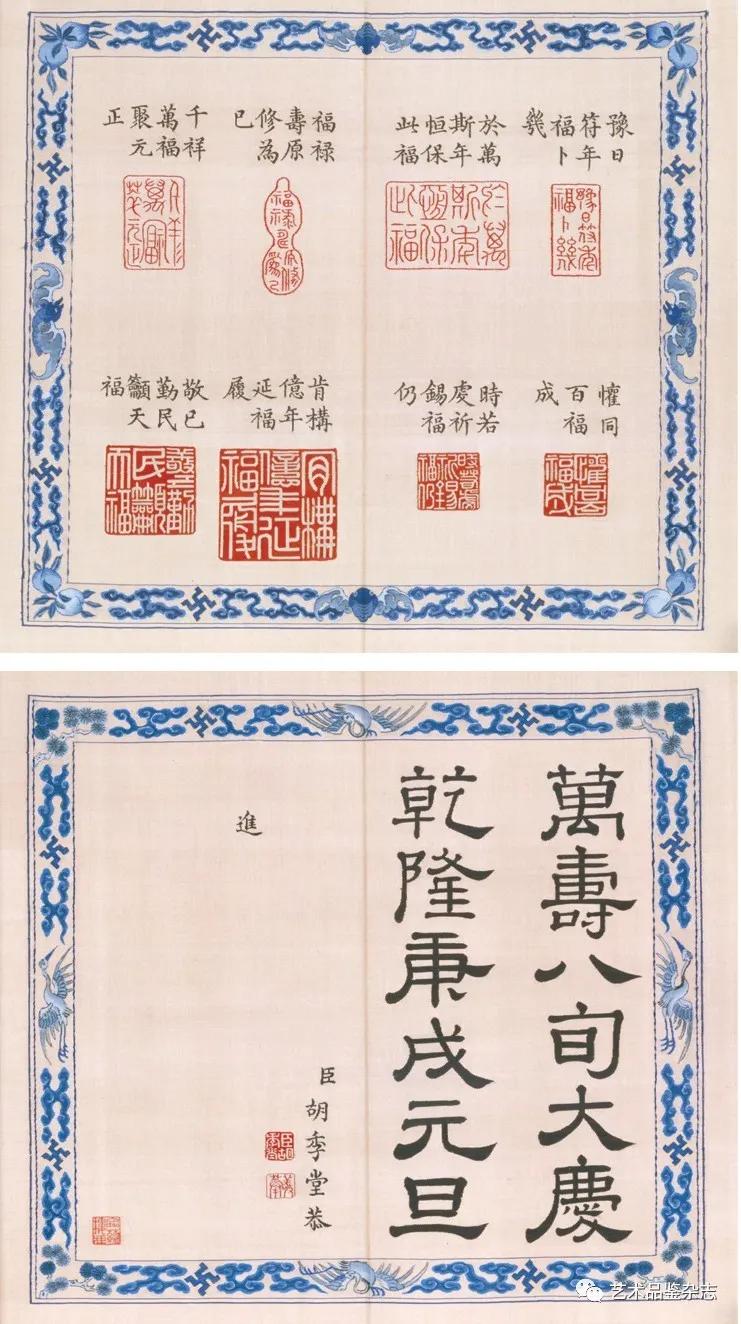 豫日
符年
福卜
幾
於萬
斯年
恒保
此福
福禄
壽原
修為
已
千祥
萬福
聚元
正
懽同
百福
成
時若
處祈
錫福
仍
肯構
億年
延福
履
敬已
勤民
籲天
福
萬壽八旬大慶
乾隆庚戌元旦
臣胡季堂恭
進
艺术品鉴杂志